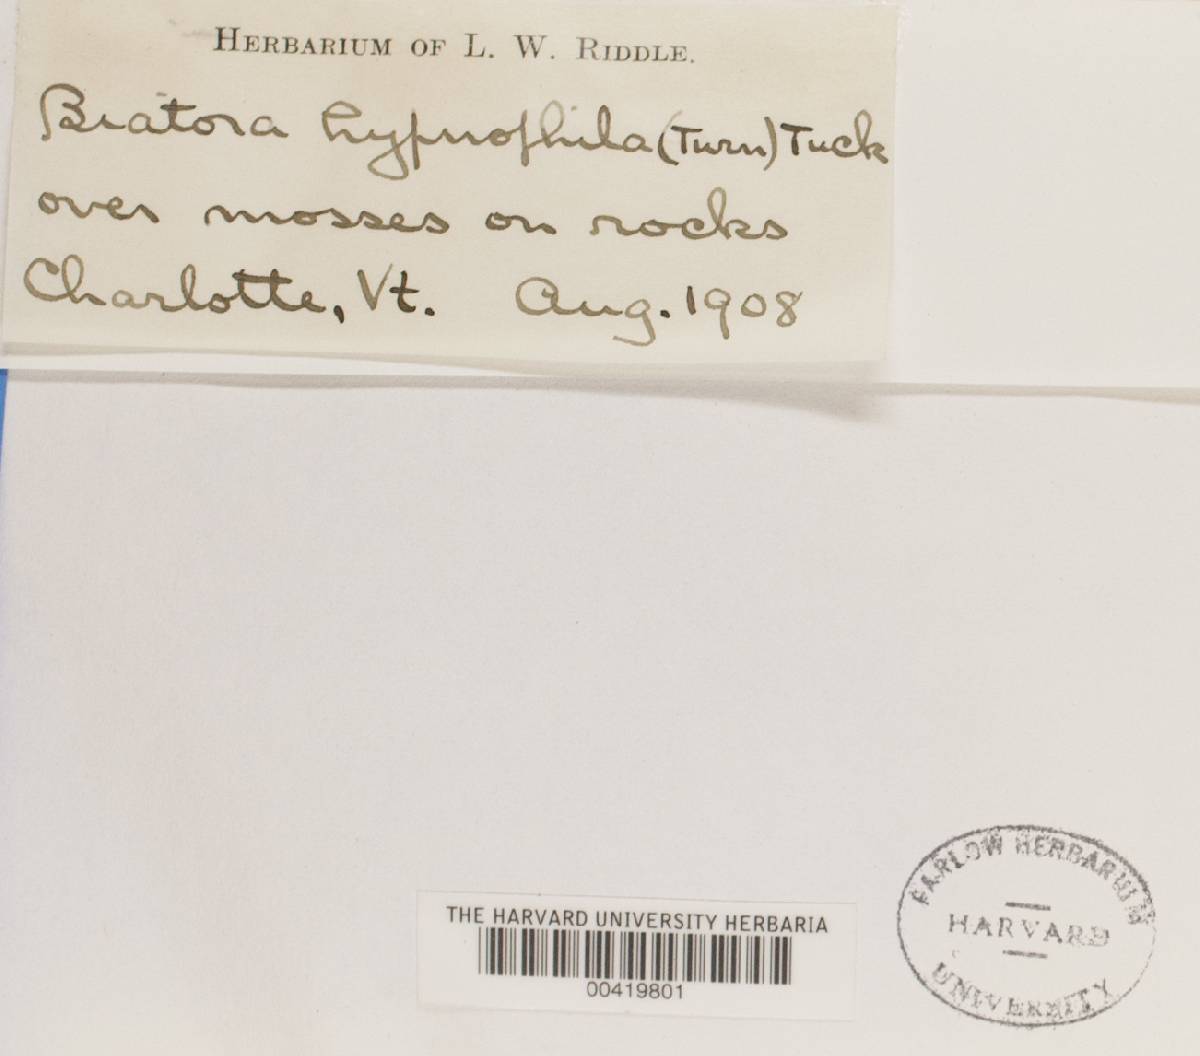 HERBARIUM OF L. W. RIDDLE.
Biatora hypnophila (Turn) Tuck
over mosses on rocks
Charlotte, Vt. Aug. 1908
THE HARVARD UNIVERSITY HERBARIA
00419801
FARLOW HERBARIUM
HARVARD
UNIVERSITY